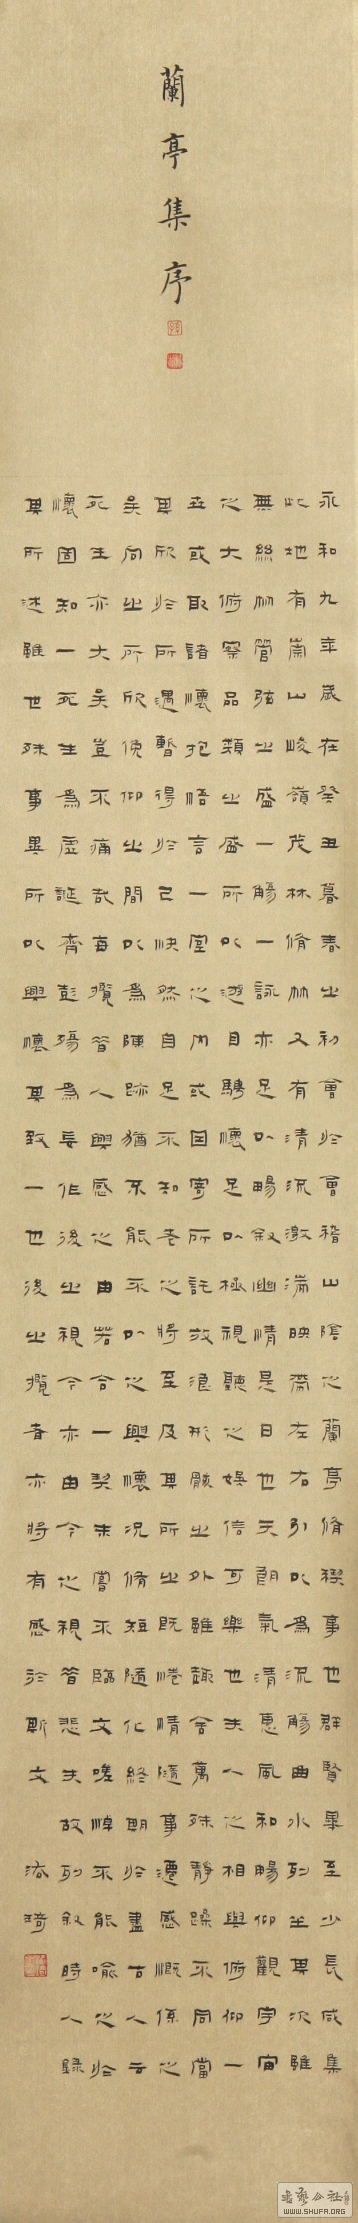 蘭亭集序
永和九年歲在癸丑暮春之初會於會稽山陰之蘭亭脩稧事也群賢畢至少長咸集
此地有崇山峻嶺茂林脩竹又有清流激湍映帶左右引以為流觴曲水列坐其次雖
無絲竹管弦之盛一觴一詠亦足以暢叙幽情是日也天朗氣清惠風和暢仰觀宇宙
之大俯察品類之盛所以遊目騁懷足以極視聽之娛信可樂也夫人之相與俯仰一
世或取諸懷抱悟言一室之內或因寄所託放浪形骸之外雖趣舍萬殊靜躁不同當
其欣於所遇暫得於己快然自足不知老之將至及其所之既惓情隨事遷感慨係之
矣向之所欣俛仰之間以為陳跡猶不能不以之興懷況脩短隨化終期於盡古人云
死生亦大矣豈不痛哉每攬昔人興感之由若合一契未嘗不臨文嗟悼不能喻之於
懷固知一死生為虛誕齊彭殤為妄作後之視今亦由今之視昔悲夫故列叙時人錄
其所述雖世殊事異所以興懷其致一也後之攬者亦將有感於斯文
琦
WWW.SHUFA.ORG